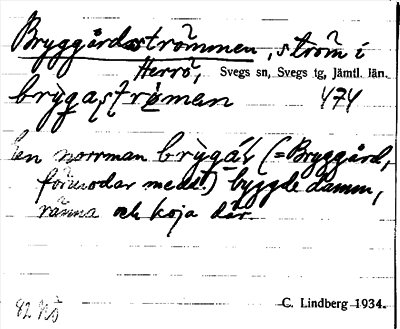 Bryggårdsströmmen, ström i
Herrö, Svegs sn, Svegs tg, Jämtl. län.
brỳgaṣtrö̀man 474
En norrman brỳgáṣ (= Bryggård,
förmodar medd.) byggde damm,
ränna och koja där.
C. Lindberg 1934.